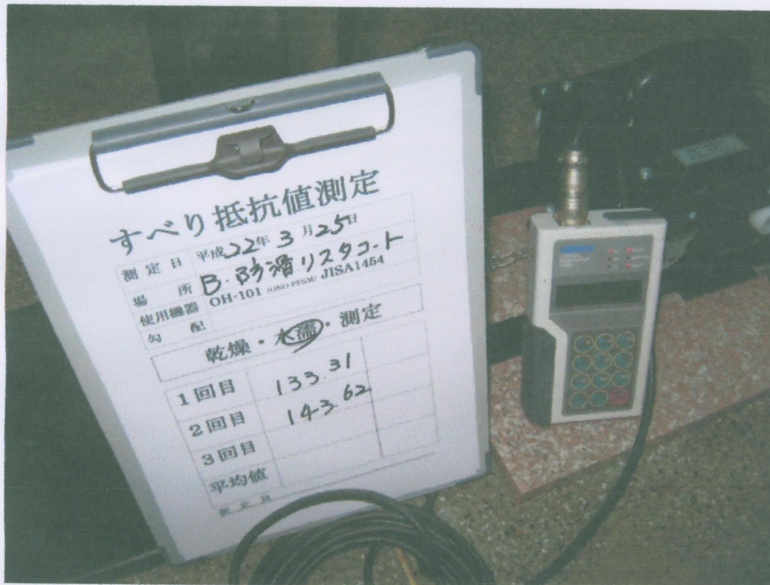 すべり抵抗値測定
測定日 平成22年3月25日
場所 B・防滑リスタコート
使用機器 OH-101 (ONO・PPSM) JISA1454
勾配
乾燥・水濡・測定
1回目 133.31
2回目 143.62
3回目
平均値